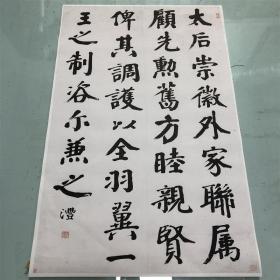 太后崇徽外家聯属
顧先勲舊方睦親賢
俾其調護以全羽翼一
王之制咨尔兼之
灃